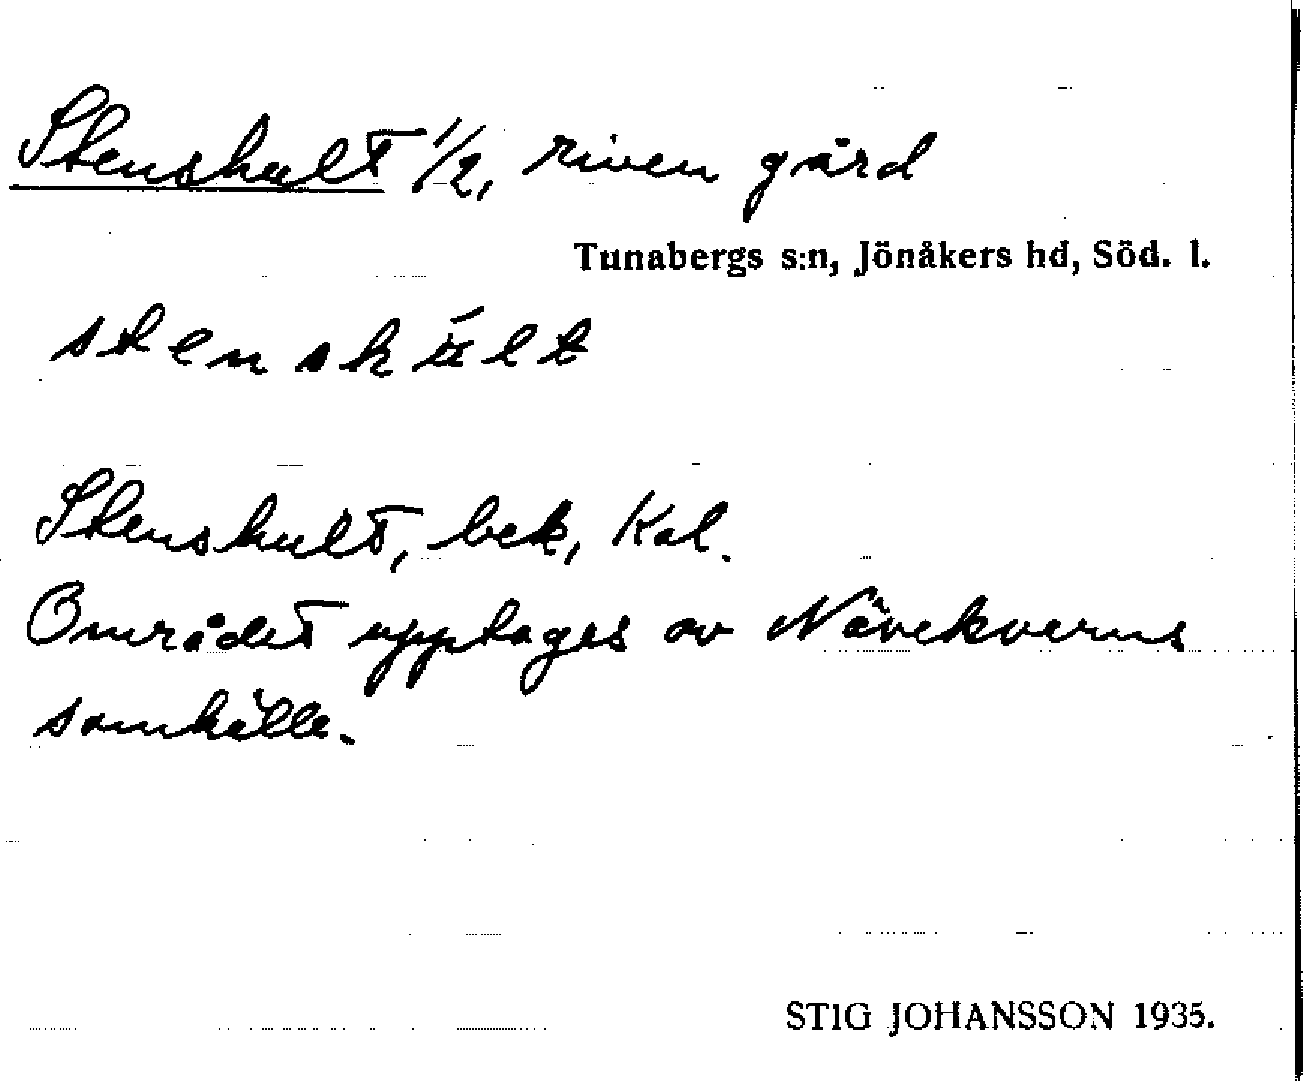 Stenshult 1/2, riven gård
Tunabergs s:n, Jönåkers hd, Söd. l.
stenskúlt
Stenshult, bek, Kal.
Området upptages av Nävekvarns
samhälle.
STIG JOHANSSON 1935.